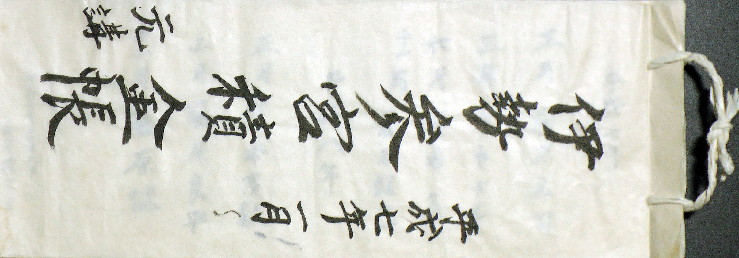 平成七年一月
伊勢参宮積金帳
元講